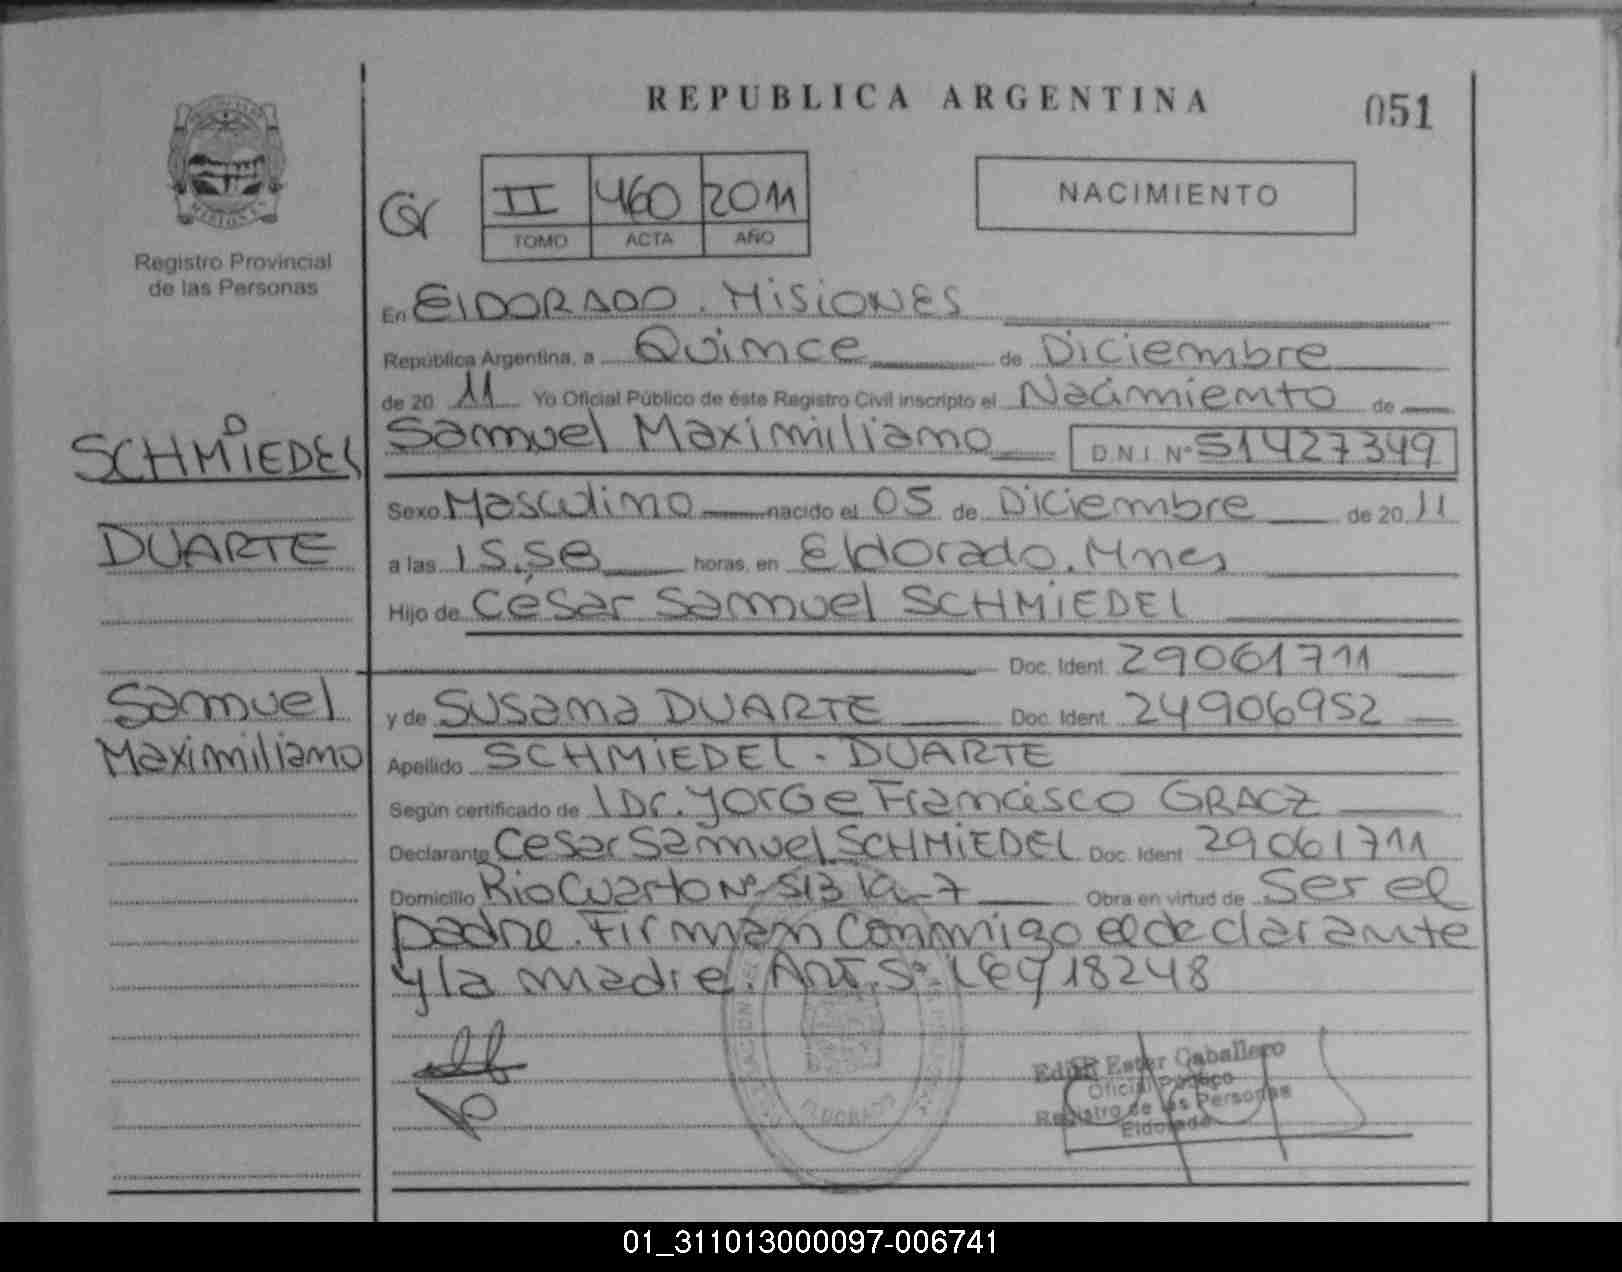 REPUBLICA ARGENTINA
051
Registro Provincial
de las Personas
II 460 2011
TOMO ACTA AÑO
NACIMIENTO
En ElDORADO. MISIONES
República Argentina, a Quince de Diciembre
de 20 11 Yo Oficial Público de éste Registro Civil inscripto el Nacimiento de
SCHMIEDEL
Samuel Maximiliano D.N.I. Nº 51427349
Sexo Masculino nacido el 05 de Diciembre de 20 11
DUARTE
a las 15.58 horas, en Eldorado. Mnes
Hijo de César Samuel SCHMIEDEL
Doc. Ident. 29061711
Samuel
Maximiliano
y de Susana DUARTE Doc. Ident. 24906952
Apellido SCHMIEDEL - DUARTE
Según certificado de Dr. Jorge Francisco GRACZ
Declarante Cesar Samuel SCHMIEDEL Doc. Ident. 29061711
Domicilio Rio Cuarto Nº 513 Obra en virtud de Ser el
padre. Firman conmigo el declarante
y la madre. Art. 5º. Ley 18248
ELDORADO
Edith Ester Caballero
Oficial Público
Registro de las Personas
Eldorado
01_311013000097-006741